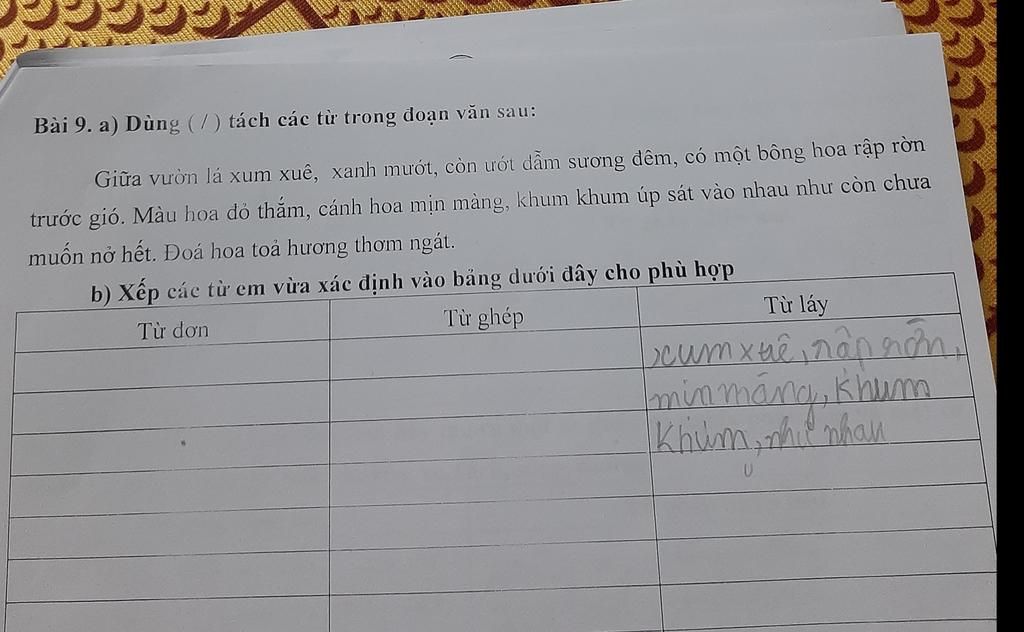 Bài 9. a) Dùng ( / ) tách các từ trong đoạn văn sau:
Giữa vườn lá xum xuê, xanh mướt, còn ướt dẫm sương đêm, có một bông hoa rập rờn
trước gió. Màu hoa đỏ thắm, cánh hoa mịn màng, khum khum úp sát vào nhau như còn chưa
muốn nở hết. Đoá hoa toả hương thơm ngát.
b) Xếp các từ em vừa xác định vào bảng dưới đây cho phù hợp
Từ đơn Từ ghép Từ láy
xum xuê, rập rờn,
mịn màng, khum
khum, như nhau